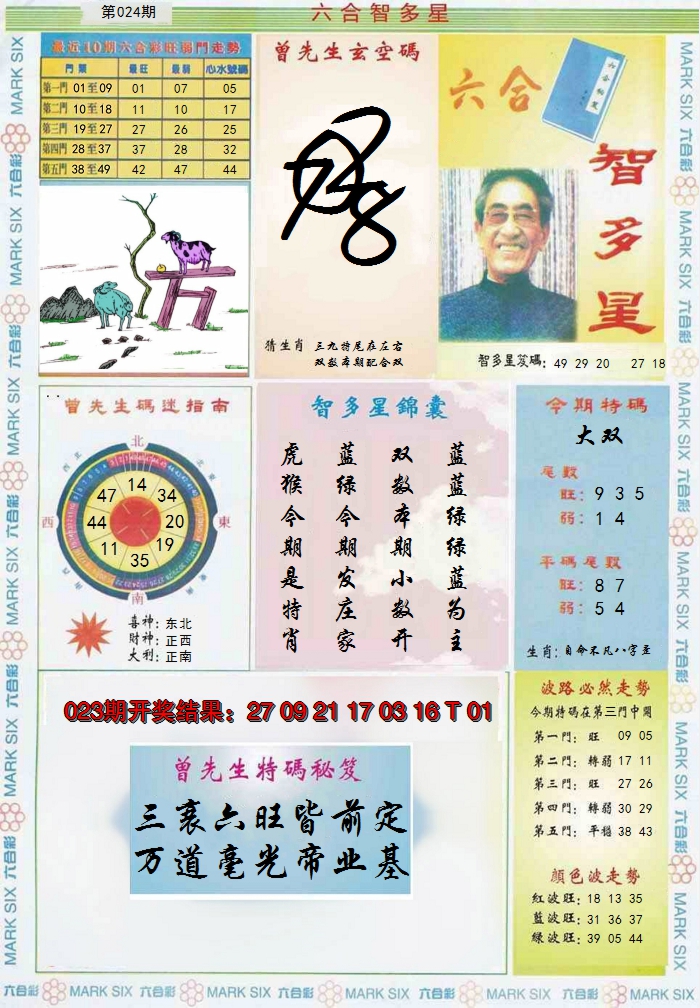 第024期
六合智多星
最近10期六合彩旺弱門走勢
門類 最旺 最弱 心水號碼
第一門 01至09 01 07 05
第二門 10至18 11 10 17
第三門 19至27 27 26 25
第四門 28至37 37 28 32
第五門 38至49 42 47 44
曾先生玄空碼
猜生肖 三九特尾在左右
双数本期配合双
六合
智多星
智多星笈碼: 49 29 20 27 18
曾先生碼迷指南
北
西北
東北
47 14 34
西 44 20 東
11 35 19
西南
東南
南
喜神: 东北
財神: 正西
大利: 正南
智多星錦囊
虎猴今期是特肖
蓝绿今期发庄家
双数本期小数开
蓝蓝绿绿蓝为主
今期特碼
大双
尾數
旺: 9 3 5
弱: 1 4
平碼尾數
旺: 8 7
弱: 5 4
生肖: 自命不凡八字至
023期开奖结果: 27 09 21 17 03 16 T 01
曾先生特碼秘笈
三衰六旺皆前定
万道毫光帝业基
波路必然走勢
今期特碼在第三門中開
第一門: 旺 09 05
第二門: 轉弱 17 11
第三門: 旺 27 26
第四門: 轉弱 30 29
第五門: 平穩 38 43
顔色波走勢
紅波旺: 18 13 35
藍波旺: 31 36 37
綠波旺: 39 05 44
MARK SIX 六合彩 MARK SIX 六合彩 MARK SIX 六合彩 MARK SIX 六合彩 MARK SIX 六合彩